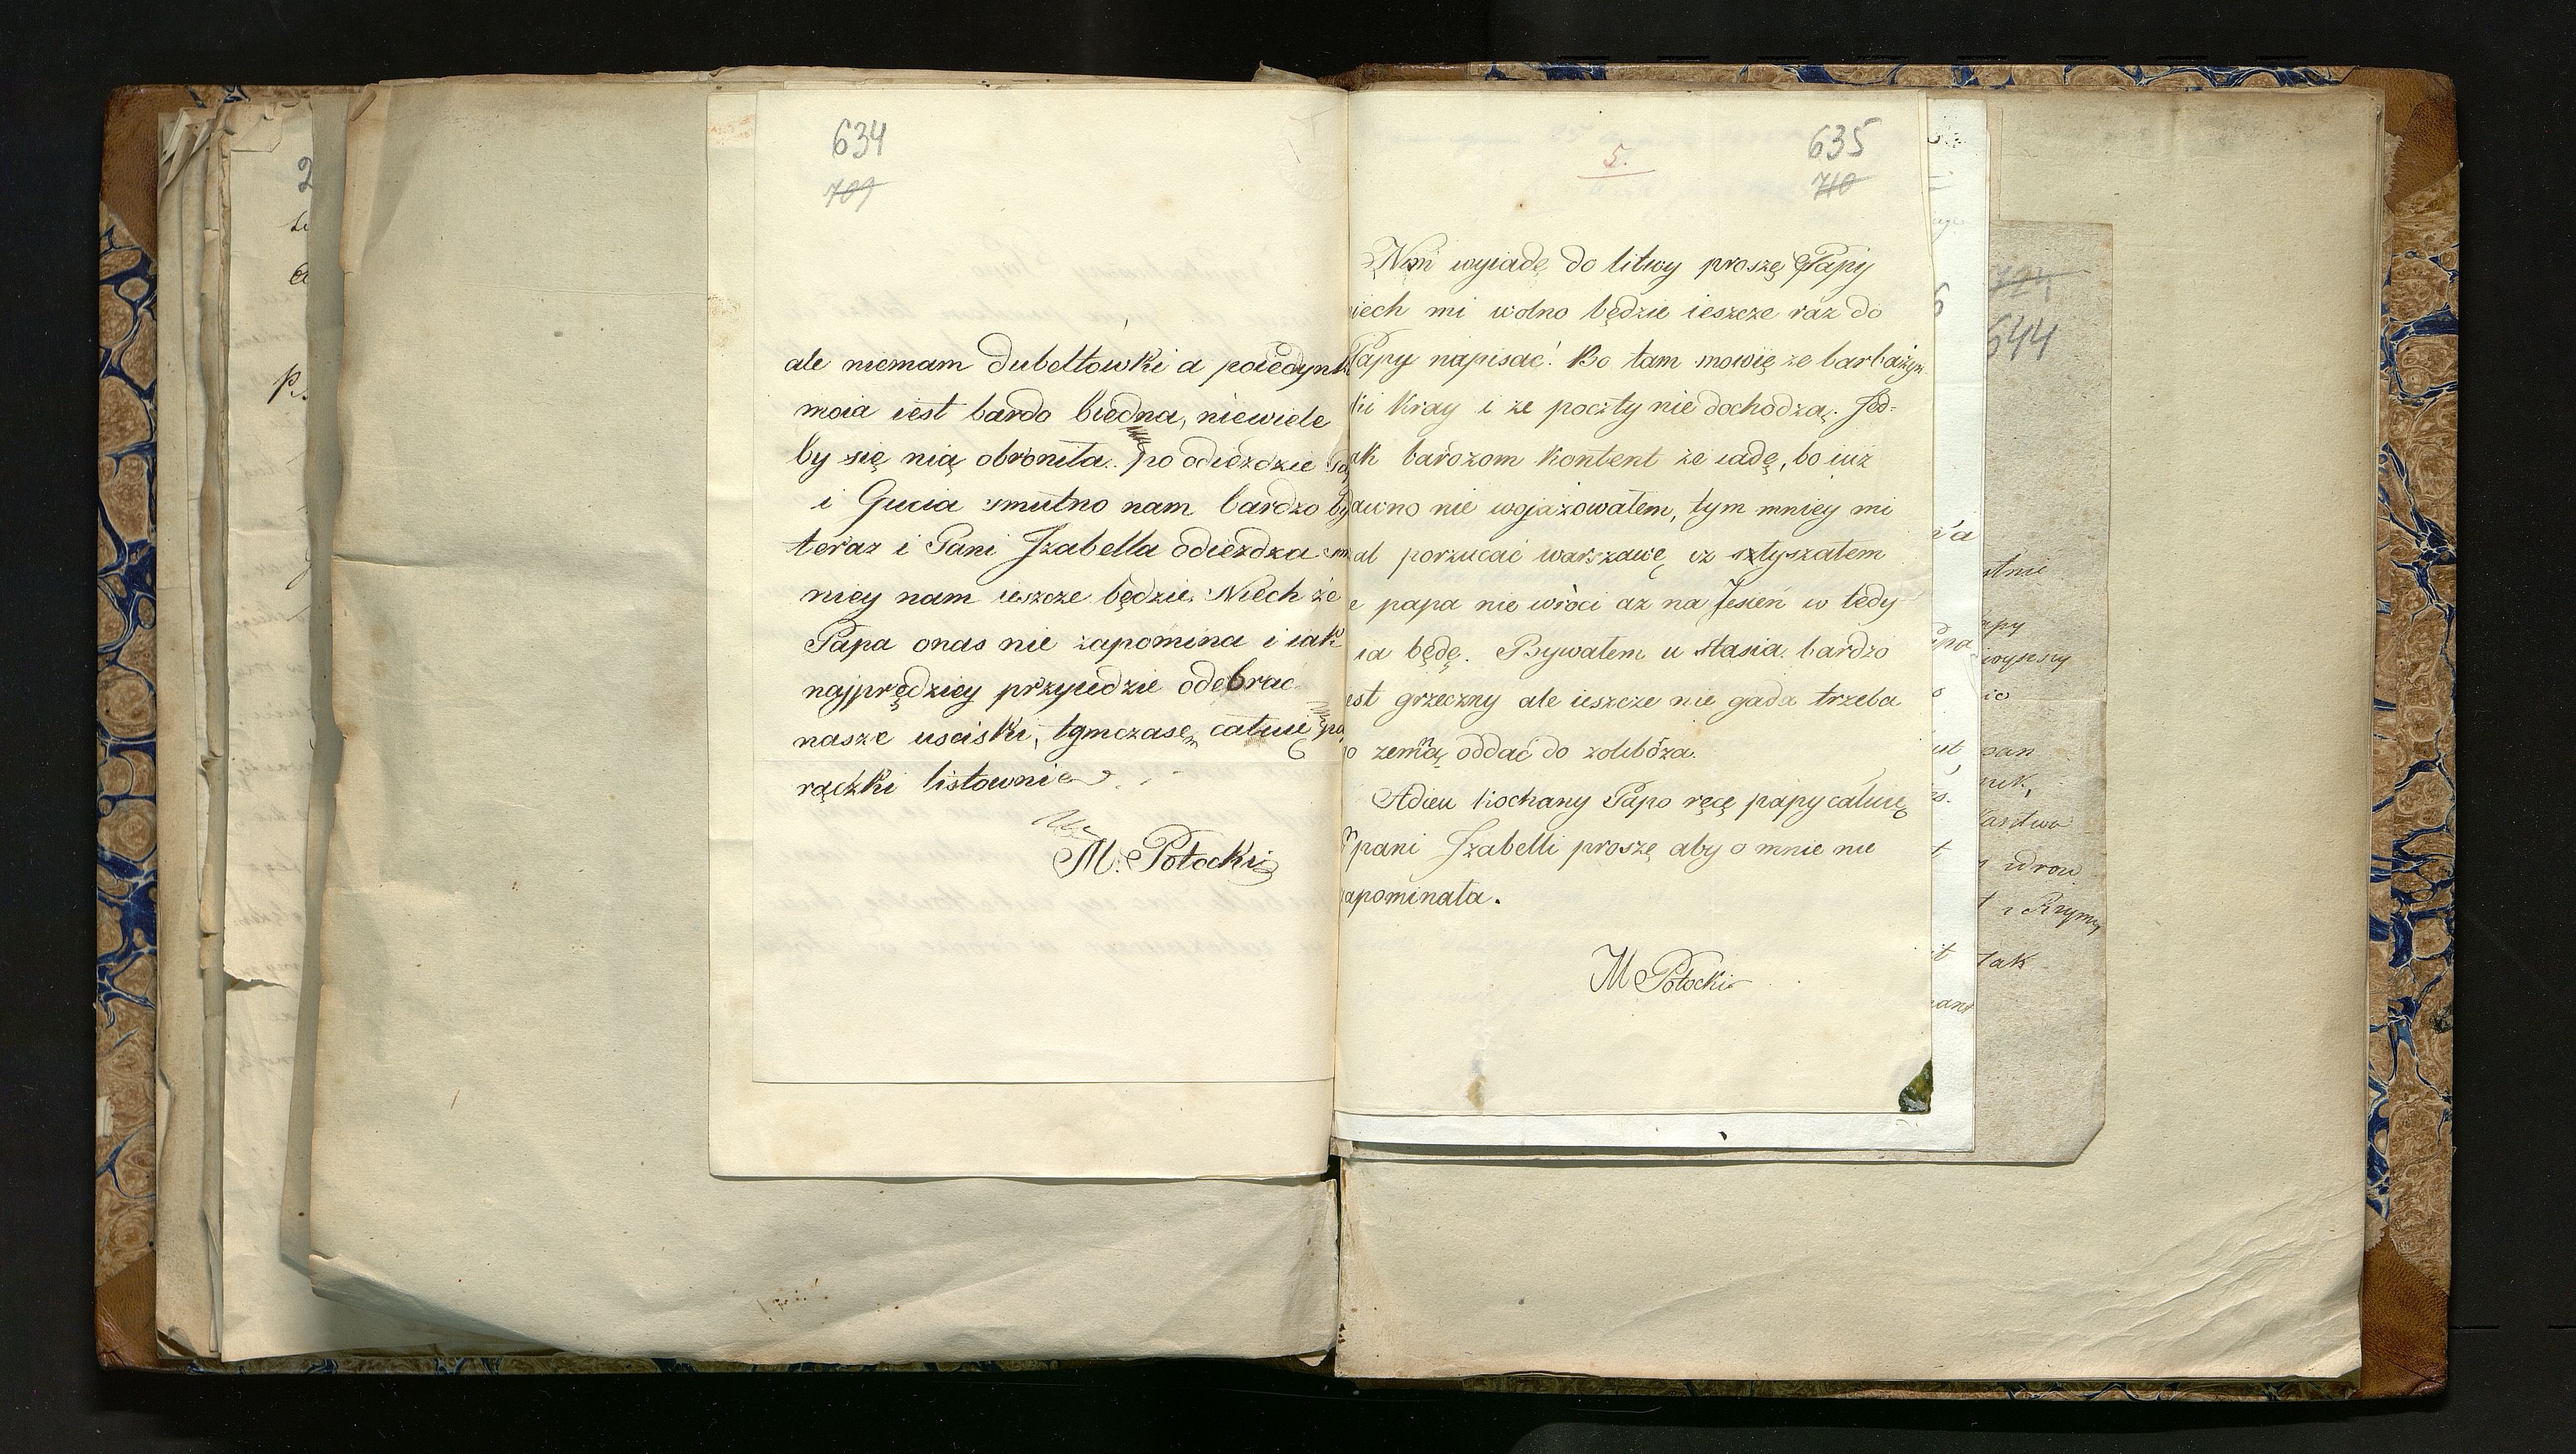 634
709
ale niemam dubeltówki a poiedynk
moia iest bardo biedna, niewiele
by się nią obroniła. po odieździe
i Gucia smutno nam bardzo by
teraz i Pani Jzabella odieżdza sm
niey nam ieszcze będzie. Niech że
Papa onas nie zapomina i iak
najprędziey przyiedzie odebrac
nasze usciski, tymczasem całuie pa
rączki listownie
M. Potocki
635
710
5.
Nim wyiadę do litwy proszę Papy
niech mi wolno będzie ieszcze raz do
Papy napisać! Bo tam mowię że barbażyn
ki Kray i że poczty nie dochodzą. Jed=
ak bardzom Kontent że iadę, bo iuż
dawno nie wojażowałem, tym mniey mi
al porzucać warszawę iż słyszałem
e papa nie wróci aż na Jesień w tedy
ia będę. Bywałem u stasia. bardzo
est grzeczny ale ieszcze nie gada trzeba
o zemną oddać do zolibóża.
Adieu kochany Papo ręcę papy całuię
pani Jzabelli proszę aby o mnie nie
apominała.
M Potocki
724
644